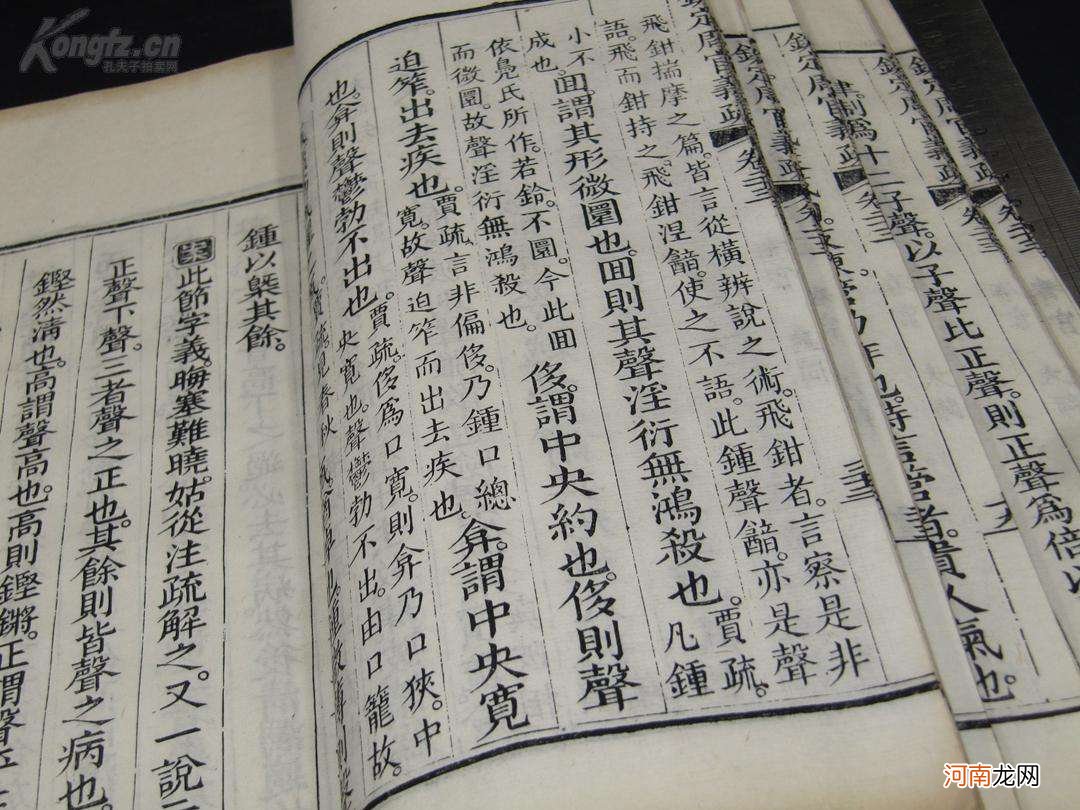 欽定周官義疏 卷三十三
欽定周官義疏 卷三十三
欽定周官義疏
欽定周官義疏 卷三十三
律制為十二子聲。以子聲比正聲。則正聲為倍以
年也。時言管者。貴人氣也。
飛鉗揣摩之篇。皆言從橫辨說之術。飛鉗者。言察是非
語。飛而鉗持之。飛鉗涅韽。使之不語。此鍾聲韽。亦是聲
小不
成也。
回。謂其形微圜也。回則其聲淫衍無鴻殺也。
賈疏。
凡鍾
依鳧氏所作。若鈴。不圜。今此回
而微圜。故聲淫衍無鴻殺也。
侈。謂中央約也。侈則聲
迫筰。出去疾也。
賈疏。言非偏侈。乃鍾口總
寬。故聲迫筰而出去疾也。
弇。謂中央寬
也。弇則聲鬱勃不出也。
賈疏。侈為口寬。則弇乃口狹。中
央寬也。聲鬱勃不出。由口籠故。
鍾以槩其餘。
案此節字義。晦塞難曉。姑從注疏解之。又一說
正聲下聲。三者聲之正也。其餘則皆聲之病也。
鏗然清也。高謂聲高也。高則鏗鏘。正謂聲
Kongfz.cn
孔夫子拍卖网
河南龙网